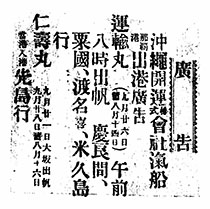 廣告
沖繩開運株式會社汽船
那覇港出港廣告
運輸丸(九月廿六日舊八月十四日)午前
八時出帆 慶良間、
粟國、渡名喜、久米島
行
仁壽丸 九月廿一日大坂出帆
九月廿八日舊八月十六日
當港入港 先島行